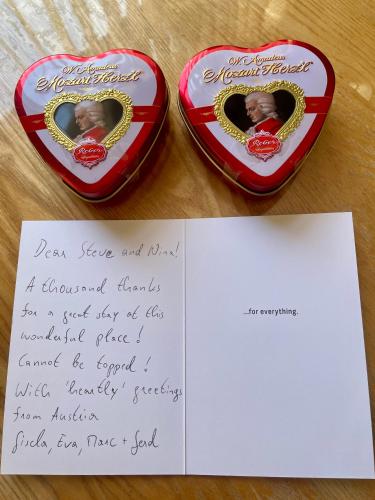 W. Amadeus
Mozart Herz'l
Reber
W. Amadeus
Mozart Herz'l
Reber
Dear Steve and Nina!
A thousand thanks
for a great stay at this
wonderful place!
Cannot be topped!
With 'heartly' greetings
from Austria
Gisela, Eva, Marc + Gerd
...for everything.